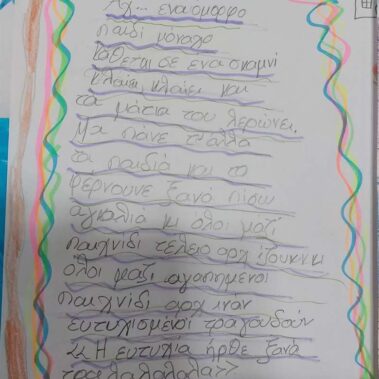 Αχ... ενα όμορφο
παιδί μόναχο
κάθεται σε ενα σκαμνί
κλαίει, κλαίει και
τα μάτια του λερώνει.
Μα πάνε τ'άλλα
τα παιδιά και το
φέρνουνε ξανά πίσω
αγκαλιά κι όλοι μάζι
παιχνίδι τέλειο αρχίζουν κι
όλοι μαζι αγαπημένοι
παιχνίδι αρχιναν
ευτυχισμένοι τραγουδούν
<<Η ευτυχία ήρθε ξανά
τραλαλαλαλα>>